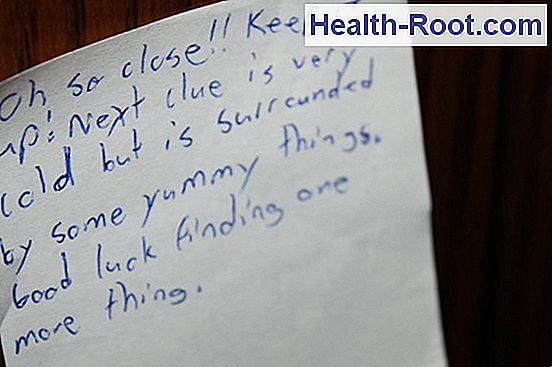 Health-Root.com
Oh so close!! Keep
up! Next clue is very
cold but is surrounded
by some yummy things.
Good luck finding one
more thing.